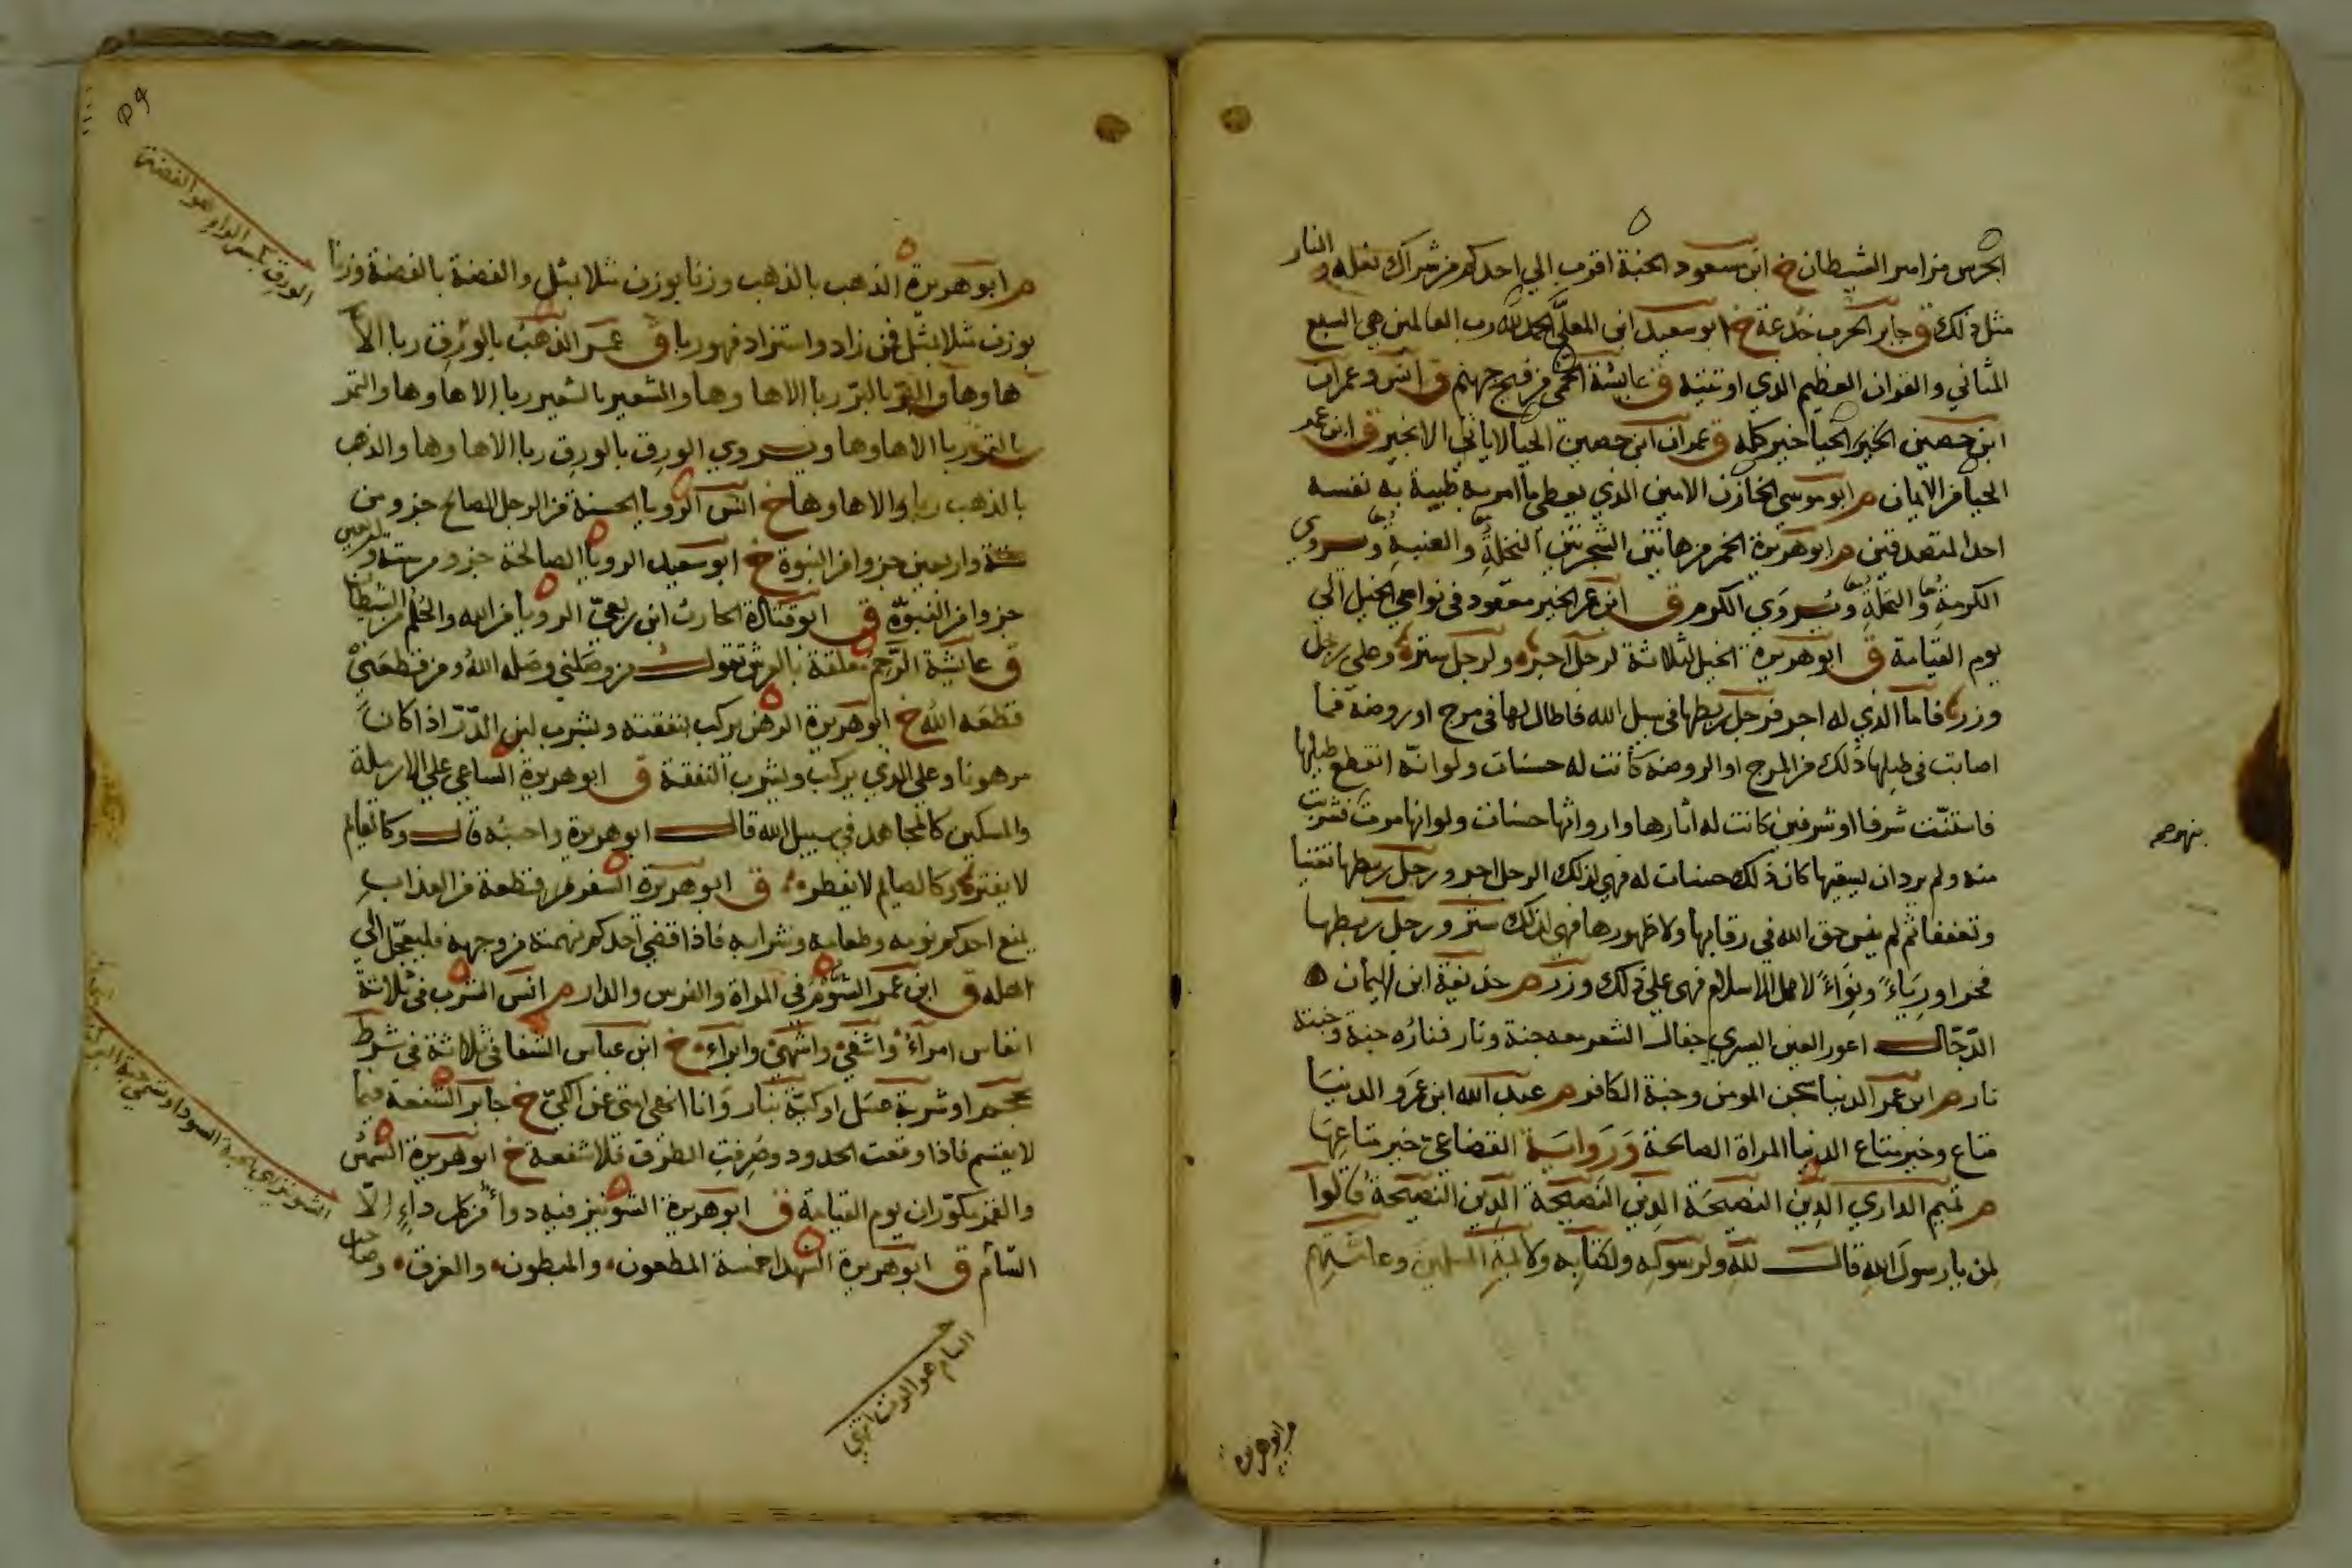 الجرس مزامير الشيطان خ ابن مسعود الجنة اقرب الي احدكم من شراك نعله والنار
مثل ذلك ق جابر الحرب خدعة خ ابو سعيد ابن المعلّي الحمد لله رب العالمين هي السبع
المثاني والقران العظيم الذي اوتيته ق عايشة الحمي من فيح جهنم ق انس وعمران
ابن حصين الحياء خير كله ق عمران ابن حصين الحيا لا ياتي الا بخير ق ابن عمر
الحيا من الايمان م ابو موسي الخازن الامين الذي يعطي ما امر به طيبة به نفسه
احد المتصدقين م ابو هريرة الخمر من هاتين الشجرتين النخلةِ والعنبةِ ويروي
الكرمةِ والنخلةِ ويُروَي الكرم ق ابن عمر الخير معقود في نواصي الخيل الي
يوم القيامة ق ابو هريرة الخيل لثلاثة لرجل اجر ولرجل ستر وعلي رجل
وزر فاما الذي له اجر فرجل ربطها في سبيل الله فاطال لها في مرج او روضة فما
اصابت في طيلها ذلك من المرج او الروضة كانت له حسنات ولو انّه انقطع طيلها
فاستنّت شرفا او شرفين كانت له آثارها وارواثها حسنات ولو انها مرت فشربت
بنهر صح
منه ولم يرد ان يسقيها كان ذلك حسنات له فهي لذلك الرجل اجر ورجل ربطها تغنيا
وتعففا ثم لم ينس حق الله في رقابها ولا ظهورها فهي لذلك ستر ورجل ربطها
فخرا ورياءً ونِوَاءً لاهل الاسلام فهي علي ذلك وزر م حذيفة ابن اليمان
الدّجّال اعور العين اليسري جفال الشعر معه جنة ونار فنارُه جنة وجنته
نار م ابن عمر الدنيا سجن المومن وجنة الكافر م عبد الله ابن عَمرو الدنيا
متاع وخير متاع الدنيا المراة الصالحة وَرَوايَة القضاعي خير متاعِها
م تميم الداري الدِّين النصيحَة الدِين النَصيحَة الدِين النَصيحَة قالوا
لِمن يا رسولَ اللهِ قال للهِ ولرسوله ولكتابه ولايمة المسلمين وعامّتهم
م ابو هريرة
الورِق بكسر الراء هو الفضة
م ابو هريرة الذهب بالذهب وزنا بوزن مثلا بمثل والفضة بالفضة وزنا
بوزن مثلا بمثل فمن زاد او استزاد فهو ربا ق عمر الذهبُ بالوَرِق ربا الاّ
ها وها والبر بالبرّ ربا الا ها وها والشعير بالشعير ربا الا ها وها والتمر
بالتمر ربا الا ها وها ويروي الورِق بالورِق ربا الا ها وها والذهب
بالذهب ربا الا ها وها خ انس الرويا الحسنة من الرجل الصالح جزو من
ستة واربعين جزوا من النبوة خ ابو سعيد الرويا الصالحة جزو من ستة واربعين
جزوا من النبوّة ق ابو قتادة الحارث ابن ربعيّ الرويا من الله والحُلُم من الشيطان
ق عايشة الرَّحِمُ معلقة بالعرش تقول من وصَلَني وصَله اللهُ ومن قطعَنِي
قطعَه الله خ ابو هريرة الرهن يركب بنفقته ويشرب لبن الدّرّ اذا كان
مرهونا وعلي الذي يركب ويشرب النفقة ق ابو هريرة الساعي علي الارملة
والمسكين كالمجاهد في سبيل الله قال ابو هريرة واحسِبُه قال وكالقايم
لا يفتر وكالصايم لا يفطر ق ابو هريرة السفر قطعة من العذاب
يمنع احدكم نومه وطعامه وشرابه فاذا قضي احدكم نهمته من وجهه فليعجّل الي
اهله ق ابن عمر الشُّؤم في المراة والفرس والدار م انس الشرب في ثلاثة
انفاس امرأُ واشفي واشهي وابراُ خ ابن عباس الشفا في ثلاثة في شرط
محجم او شربة عسَل او كيّة بنار وانا انهي امتي عن الكيّ خ جابر الشفعة فيما
لا يقسم فاذا وقعت الحدود وصُرِفتِ الطرق فلا شفعة خ ابو هريرة الشمسُ
والقمر مكوّران يوم القيامة ق ابو هريرة الشونيز فيه دواءٌ من كل داءٍ الاّ
السّام ق ابو هريرة الشهدا خمسة المطعون والمبطون والغرق وصاحب
السام هو الموت